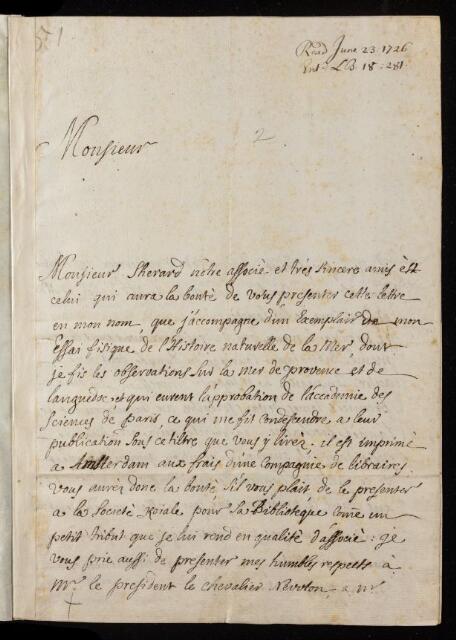 Read June 23. 1726
Ent.d LB. 18. 281.
2
Monsieur
Monsieur Sherard nôtre associé et trés sincere amis est
celui qui aura la bonté de vous presenter cette lettre
en mon nom, que j'accompagne d'un Exemplaire de mon
Essai fisique de l'Histoire naturelle de la Mer, dont
je fis les observations sur la mer de provence et de
languedoc et qui eurent l'approbation de l'accademie des
sciences de paris, ce qui me fit condescendre a leur
publication sous ce tiltre que vous y lirez. il est imprimé
a Amsterdam aux frais d'une compagnie de libraires,
vous aurez donc la bonté s'il vous plait de le presenter
a la societé Roiale pour sa Biblioteque come un
petit tribut que je lui rend en qualité d'associé: je
vous prie aussi de presenter mes humbles respects à
Mr. le president le chevalier Nevvton, a mr.